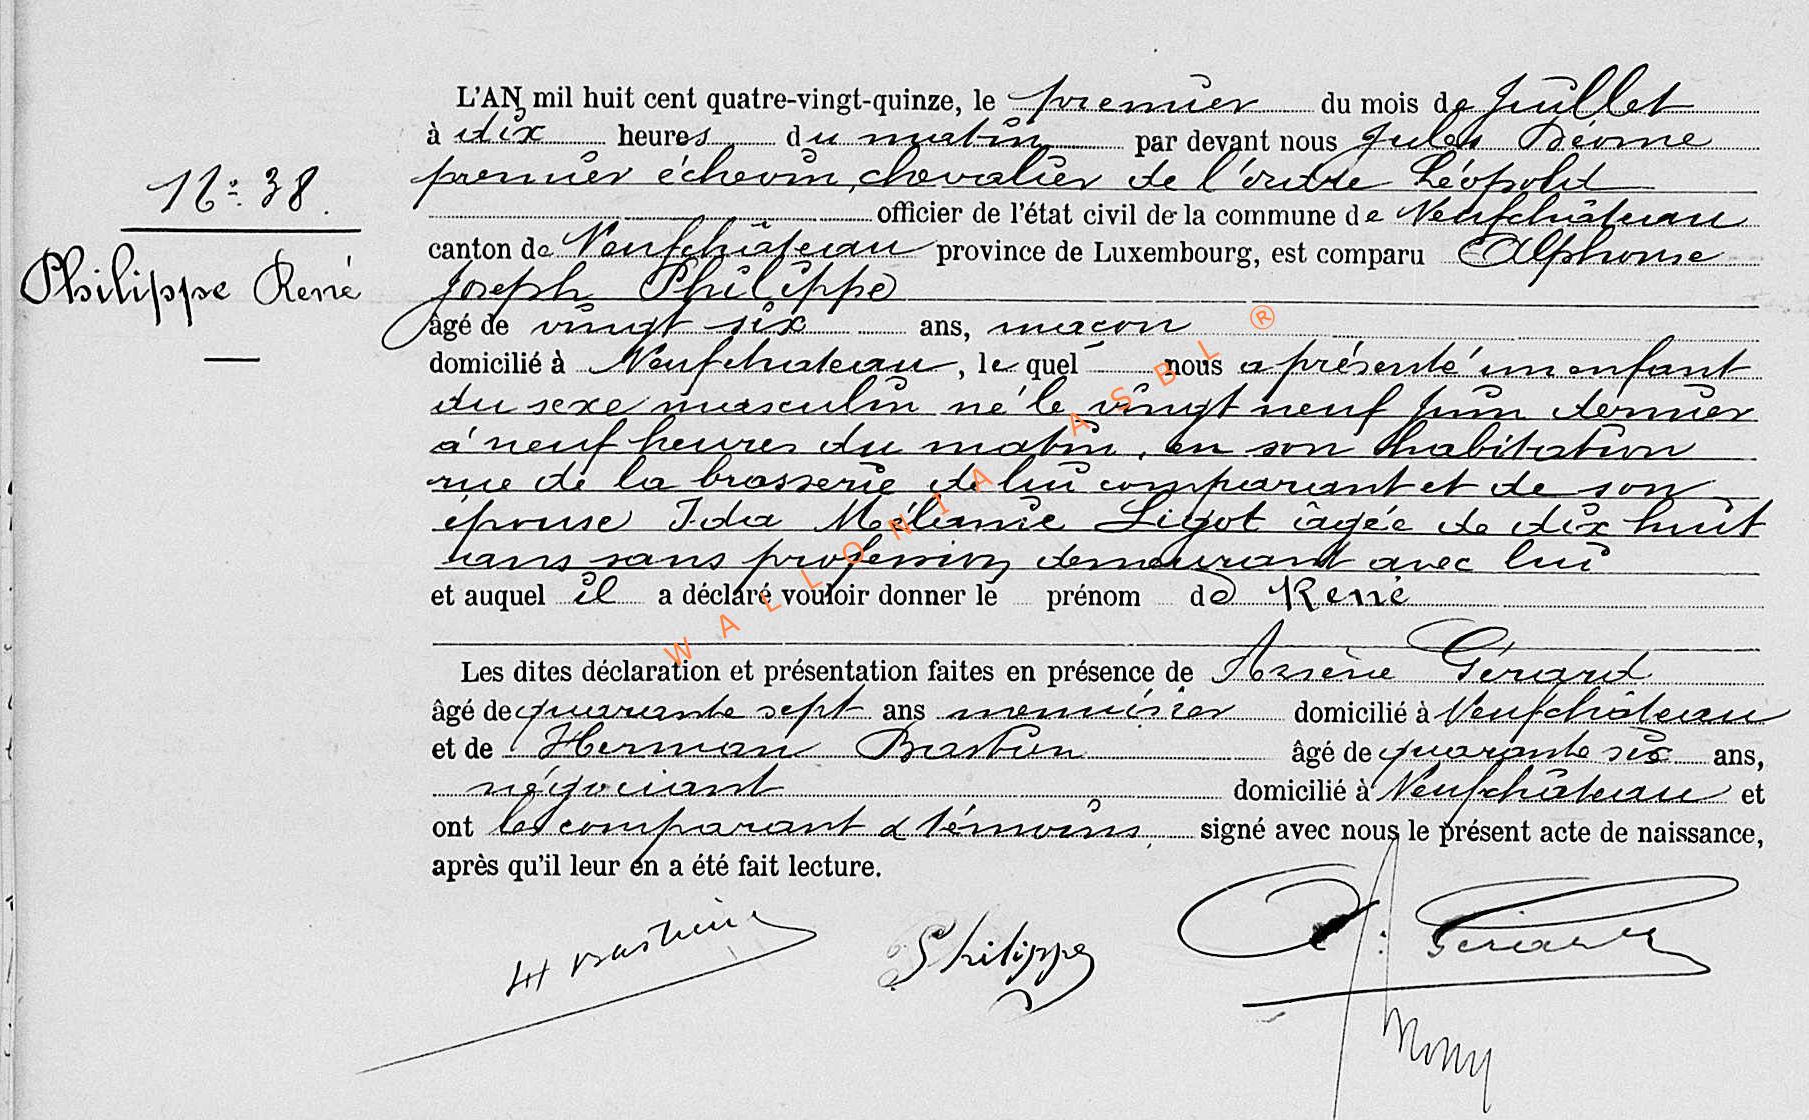 N° 38.
Philippe René
L'AN mil huit cent quatre-vingt-quinze, le premier du mois de Juillet
à dix heures du matin par devant nous Jules
premier échevin, chevalier de l'ordre Léopold
officier de l'état civil de la commune de Neufchâteau
canton de Neufchâteau province de Luxembourg, est comparu Alphonse
Joseph Philippe
âgé de vingt six ans, maçon
domicilié à Neufchateau, le quel nous a présenté un enfant
du sexe masculin né le vingt neuf Juin dernier
à neuf heures du matin, en son habitation
rue de la brasserie de lui comparant et de son
épouse Ida Mélanie Ligot âgée de dix huit
ans sans profession demeurant avec lui
et auquel il a déclaré vouloir donner le prénom de René
Les dites déclaration et présentation faites en présence de Arsène Gérard
âgé de quarante sept ans menuisier domicilié à Neufchâteau
et de Herman Bastin âgé de quarante six ans,
négociant domicilié à Neufchâteau et
ont les comparant & témoins signé avec nous le présent acte de naissance,
après qu'il leur en a été fait lecture.
H Bastin Philippe A: Gérard
WALLONIA ASBL ®